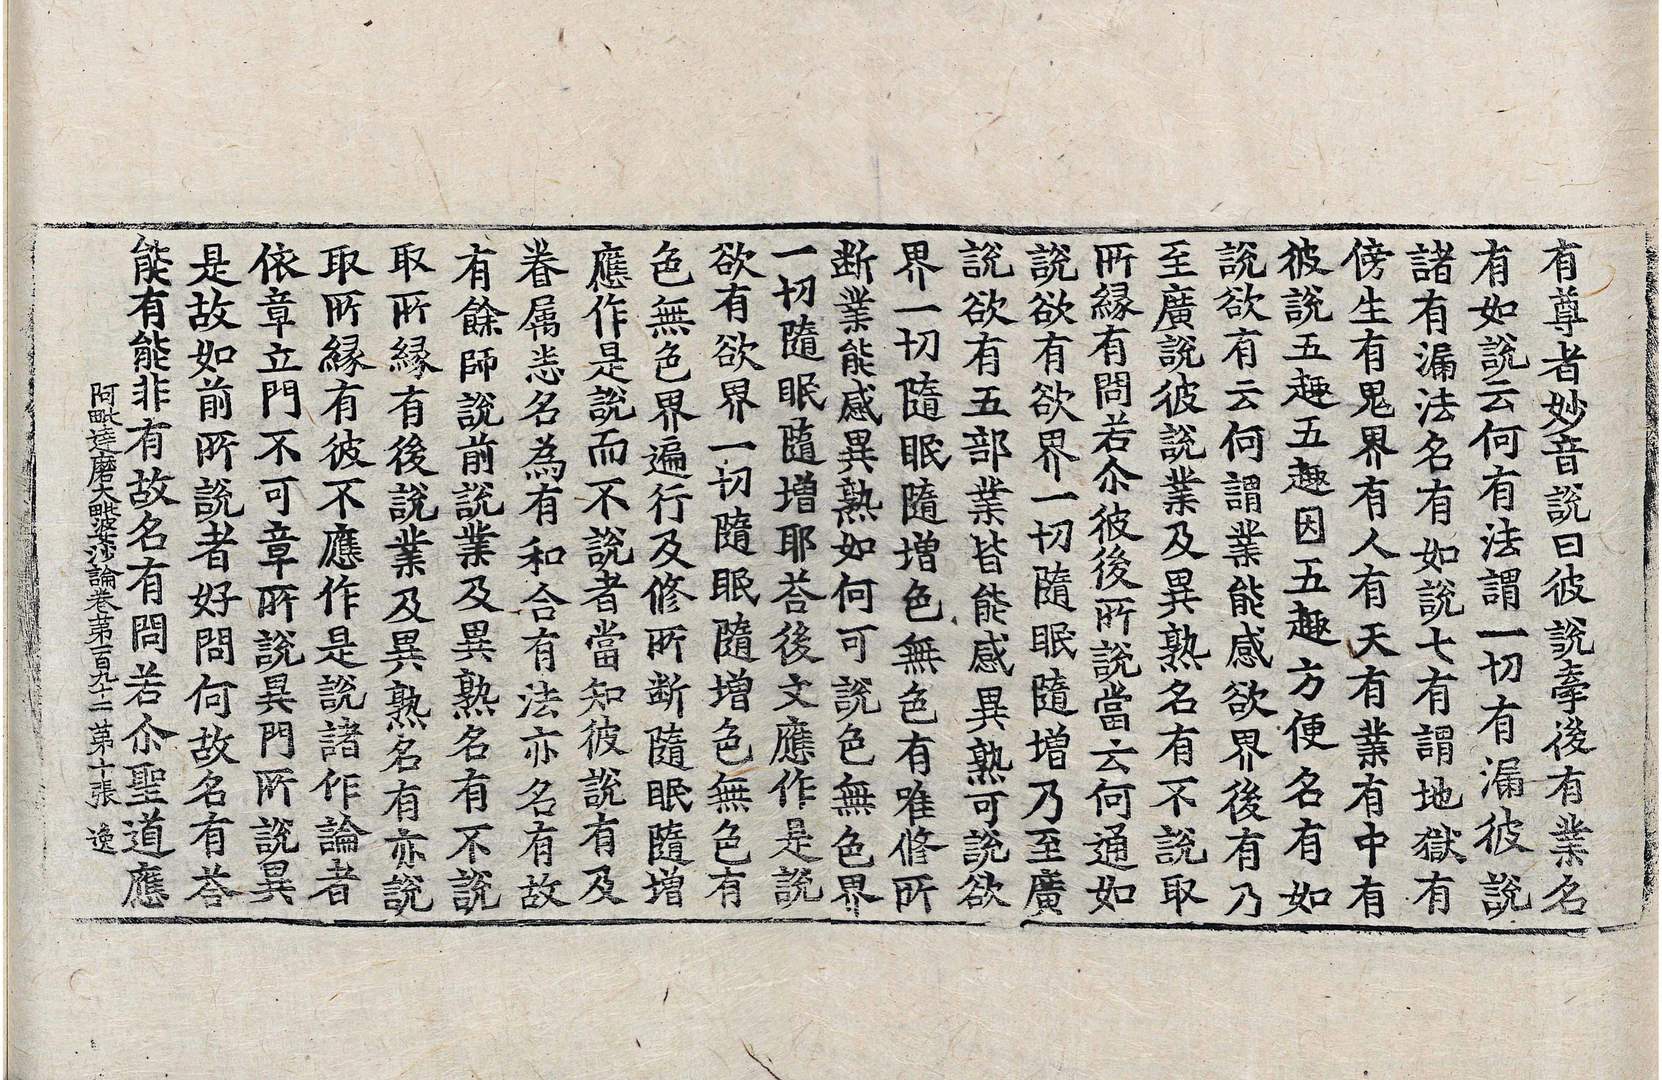 有尊者妙音說曰彼說牽後有業名
有如說云何有法謂一切有漏彼說
諸有漏法名有如說七有謂地獄有
傍生有鬼界有人有天有業有中有
彼說五趣五趣因五趣方便名有如
說欲有云何謂業能感欲界後有乃
至廣說彼說業及異熟名有不說取
所緣有問若尒彼後所說當云何通如
說欲有欲界一切隨眠隨增乃至廣
說欲有五部業皆能感異熟可說欲
界一切隨眠隨增色無色有唯修所
斷業能感異熟如何可說色無色界
一切隨眠隨增耶荅後文應作是說
欲有欲界一切隨眠隨增色無色有
色無色界遍行及修所斷隨眠隨增
應作是說而不說者當知彼說有及
眷属恙名為有和合有法亦名有故
有餘師說前說業及異熟名有不說
取所緣有後說業及異熟名有亦說
取所緣有彼不應作是說諸作論者
依章立門不可章所說異門所說異
是故如前所說者好問何故名有荅
能有能非有故名有問若尒聖道應
阿毗達磨大毗婆沙論卷第一百九十二 第十張 逸